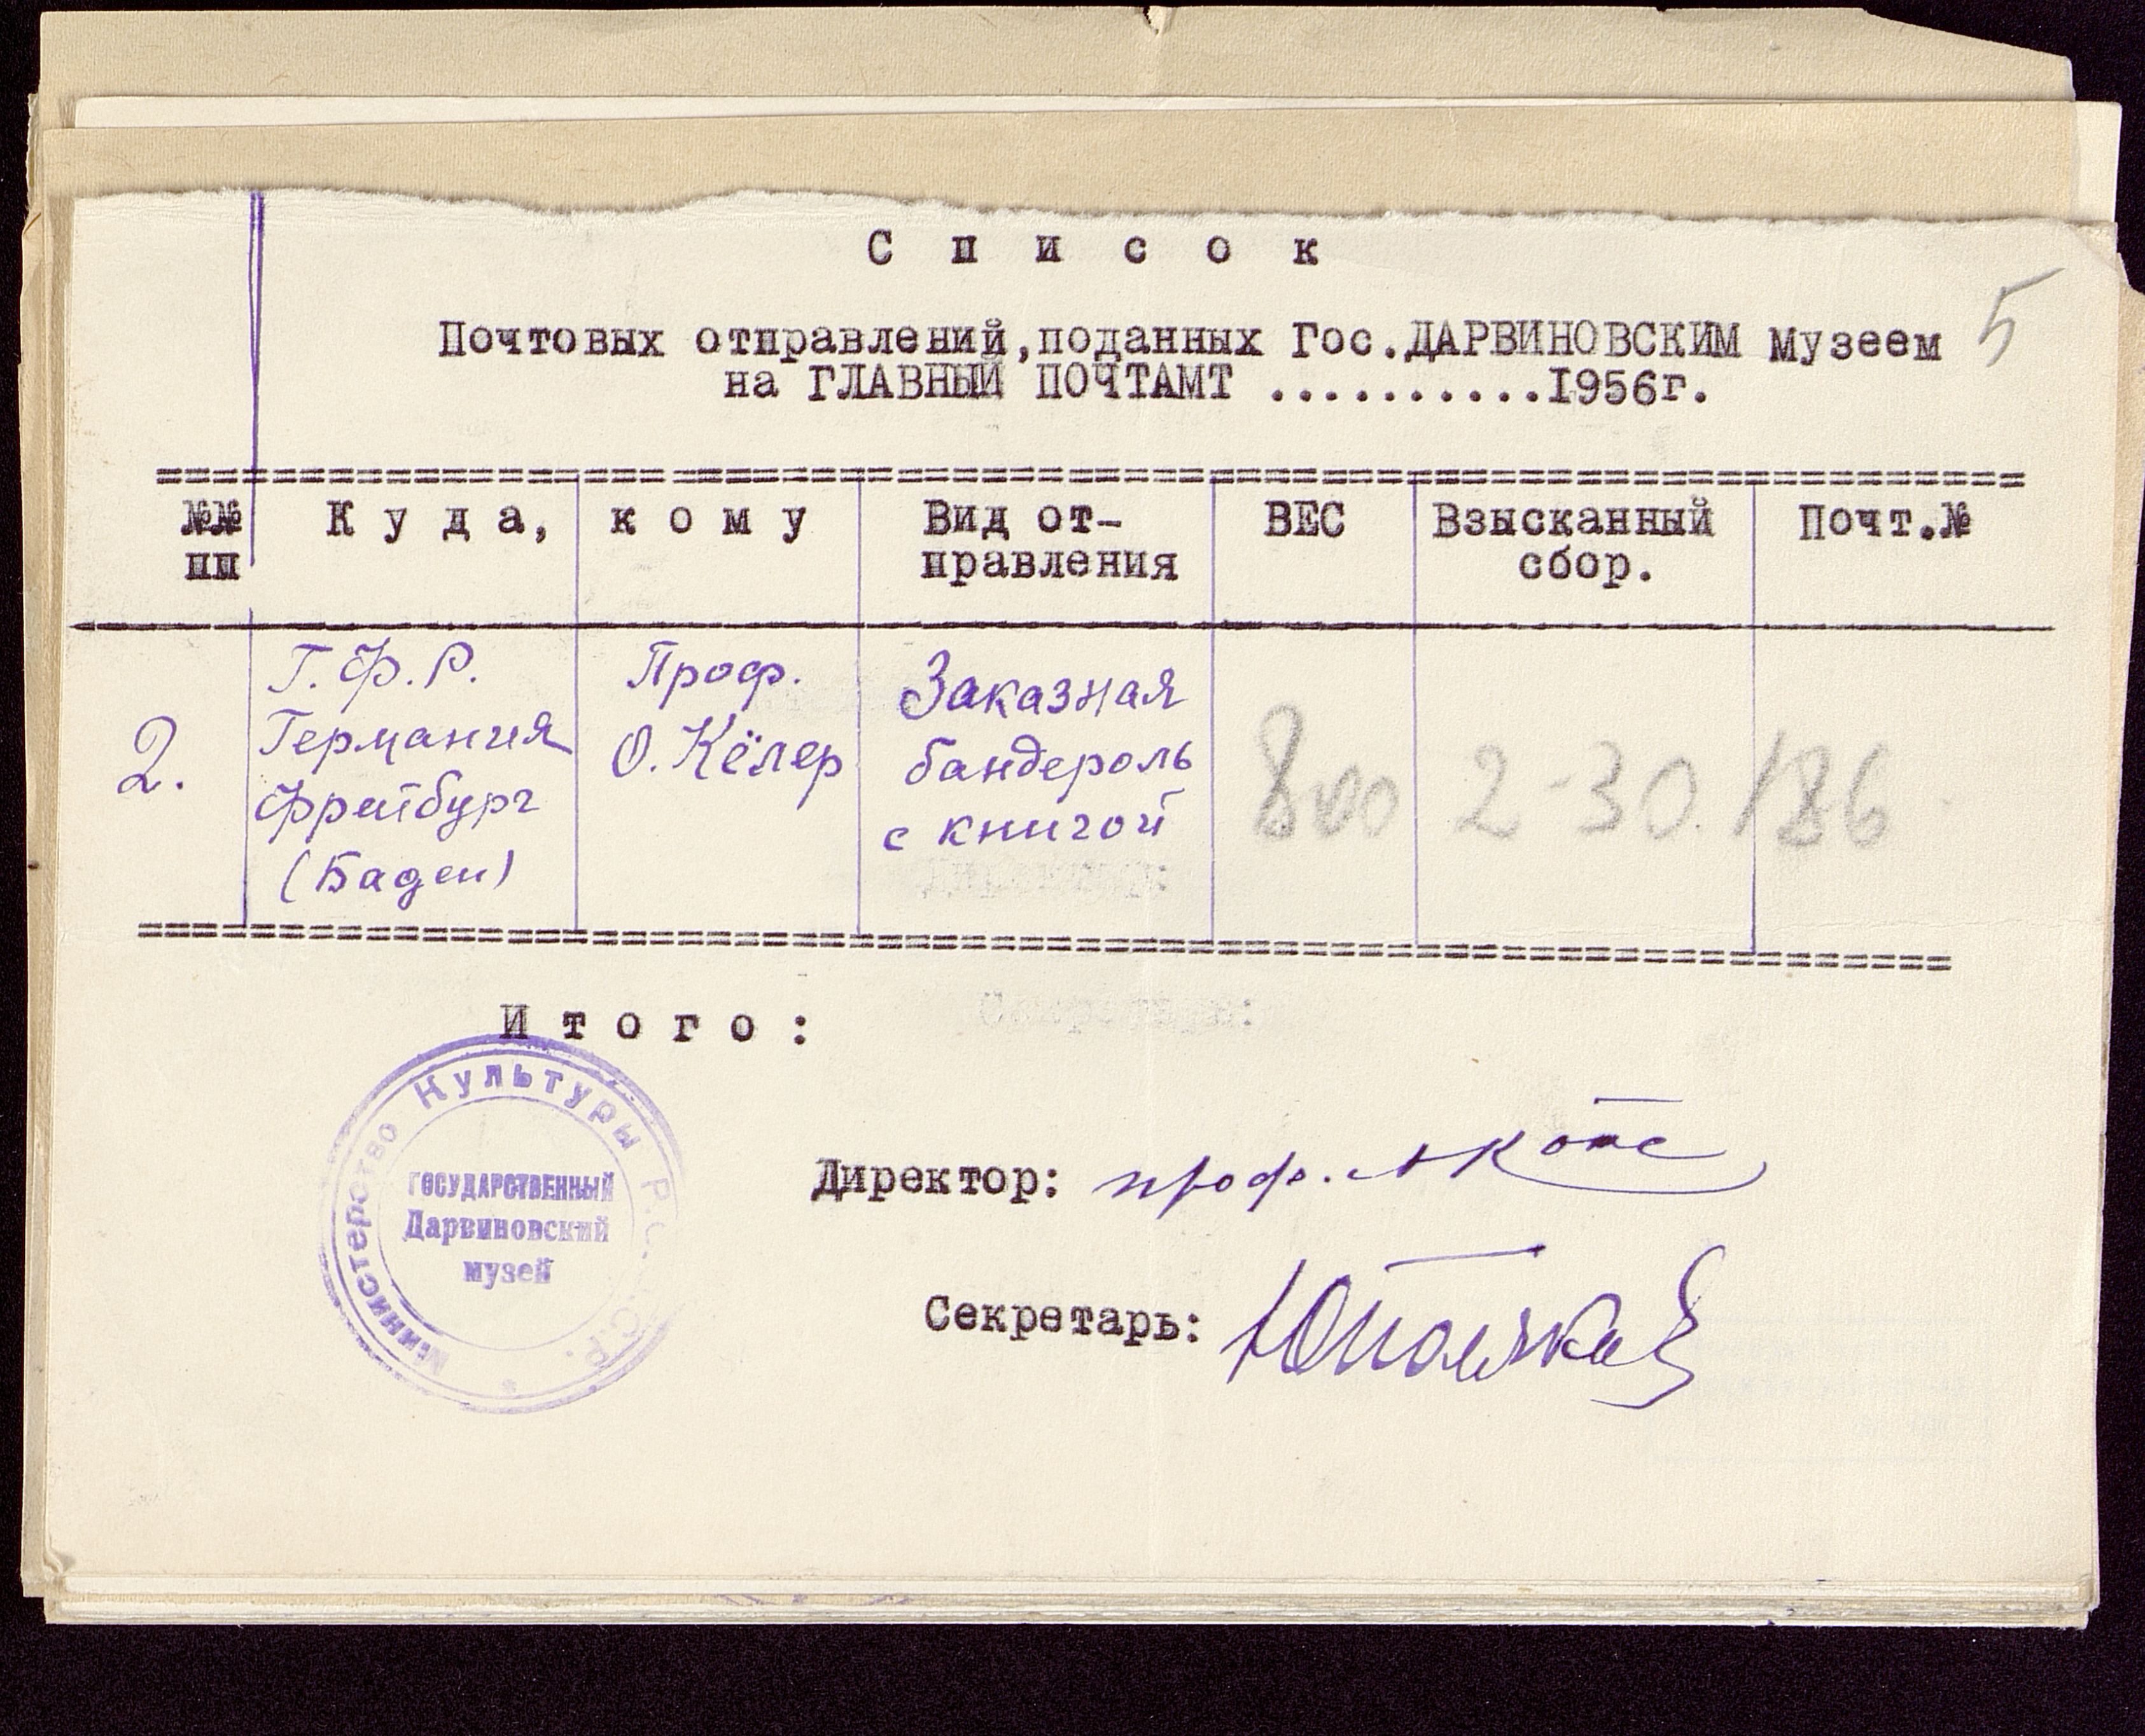 С п и с о к
5
Почтовых отправлений,поданных Гос.ДАРВИНОВСКИМ Музеем
на ГЛАВНЫЙ ПОЧТАМТ ..........1956г.
№№ К у д а, к о м у Вид от- ВЕС Взысканный Почт.№
пп правления сбор.
Г.Ф.Р. Проф. Заказная
2. Германия О. Кёлер бандероль 800 2-30. 186
Фрейбург с книгой
(Баден)
И т о г о :
Министерство Культуры Р.С.Ф.С.Р.
ГОСУДАРСТВЕННЫЙ
Дарвиновский
музей
Директор: проф. А Котс
Секретарь: